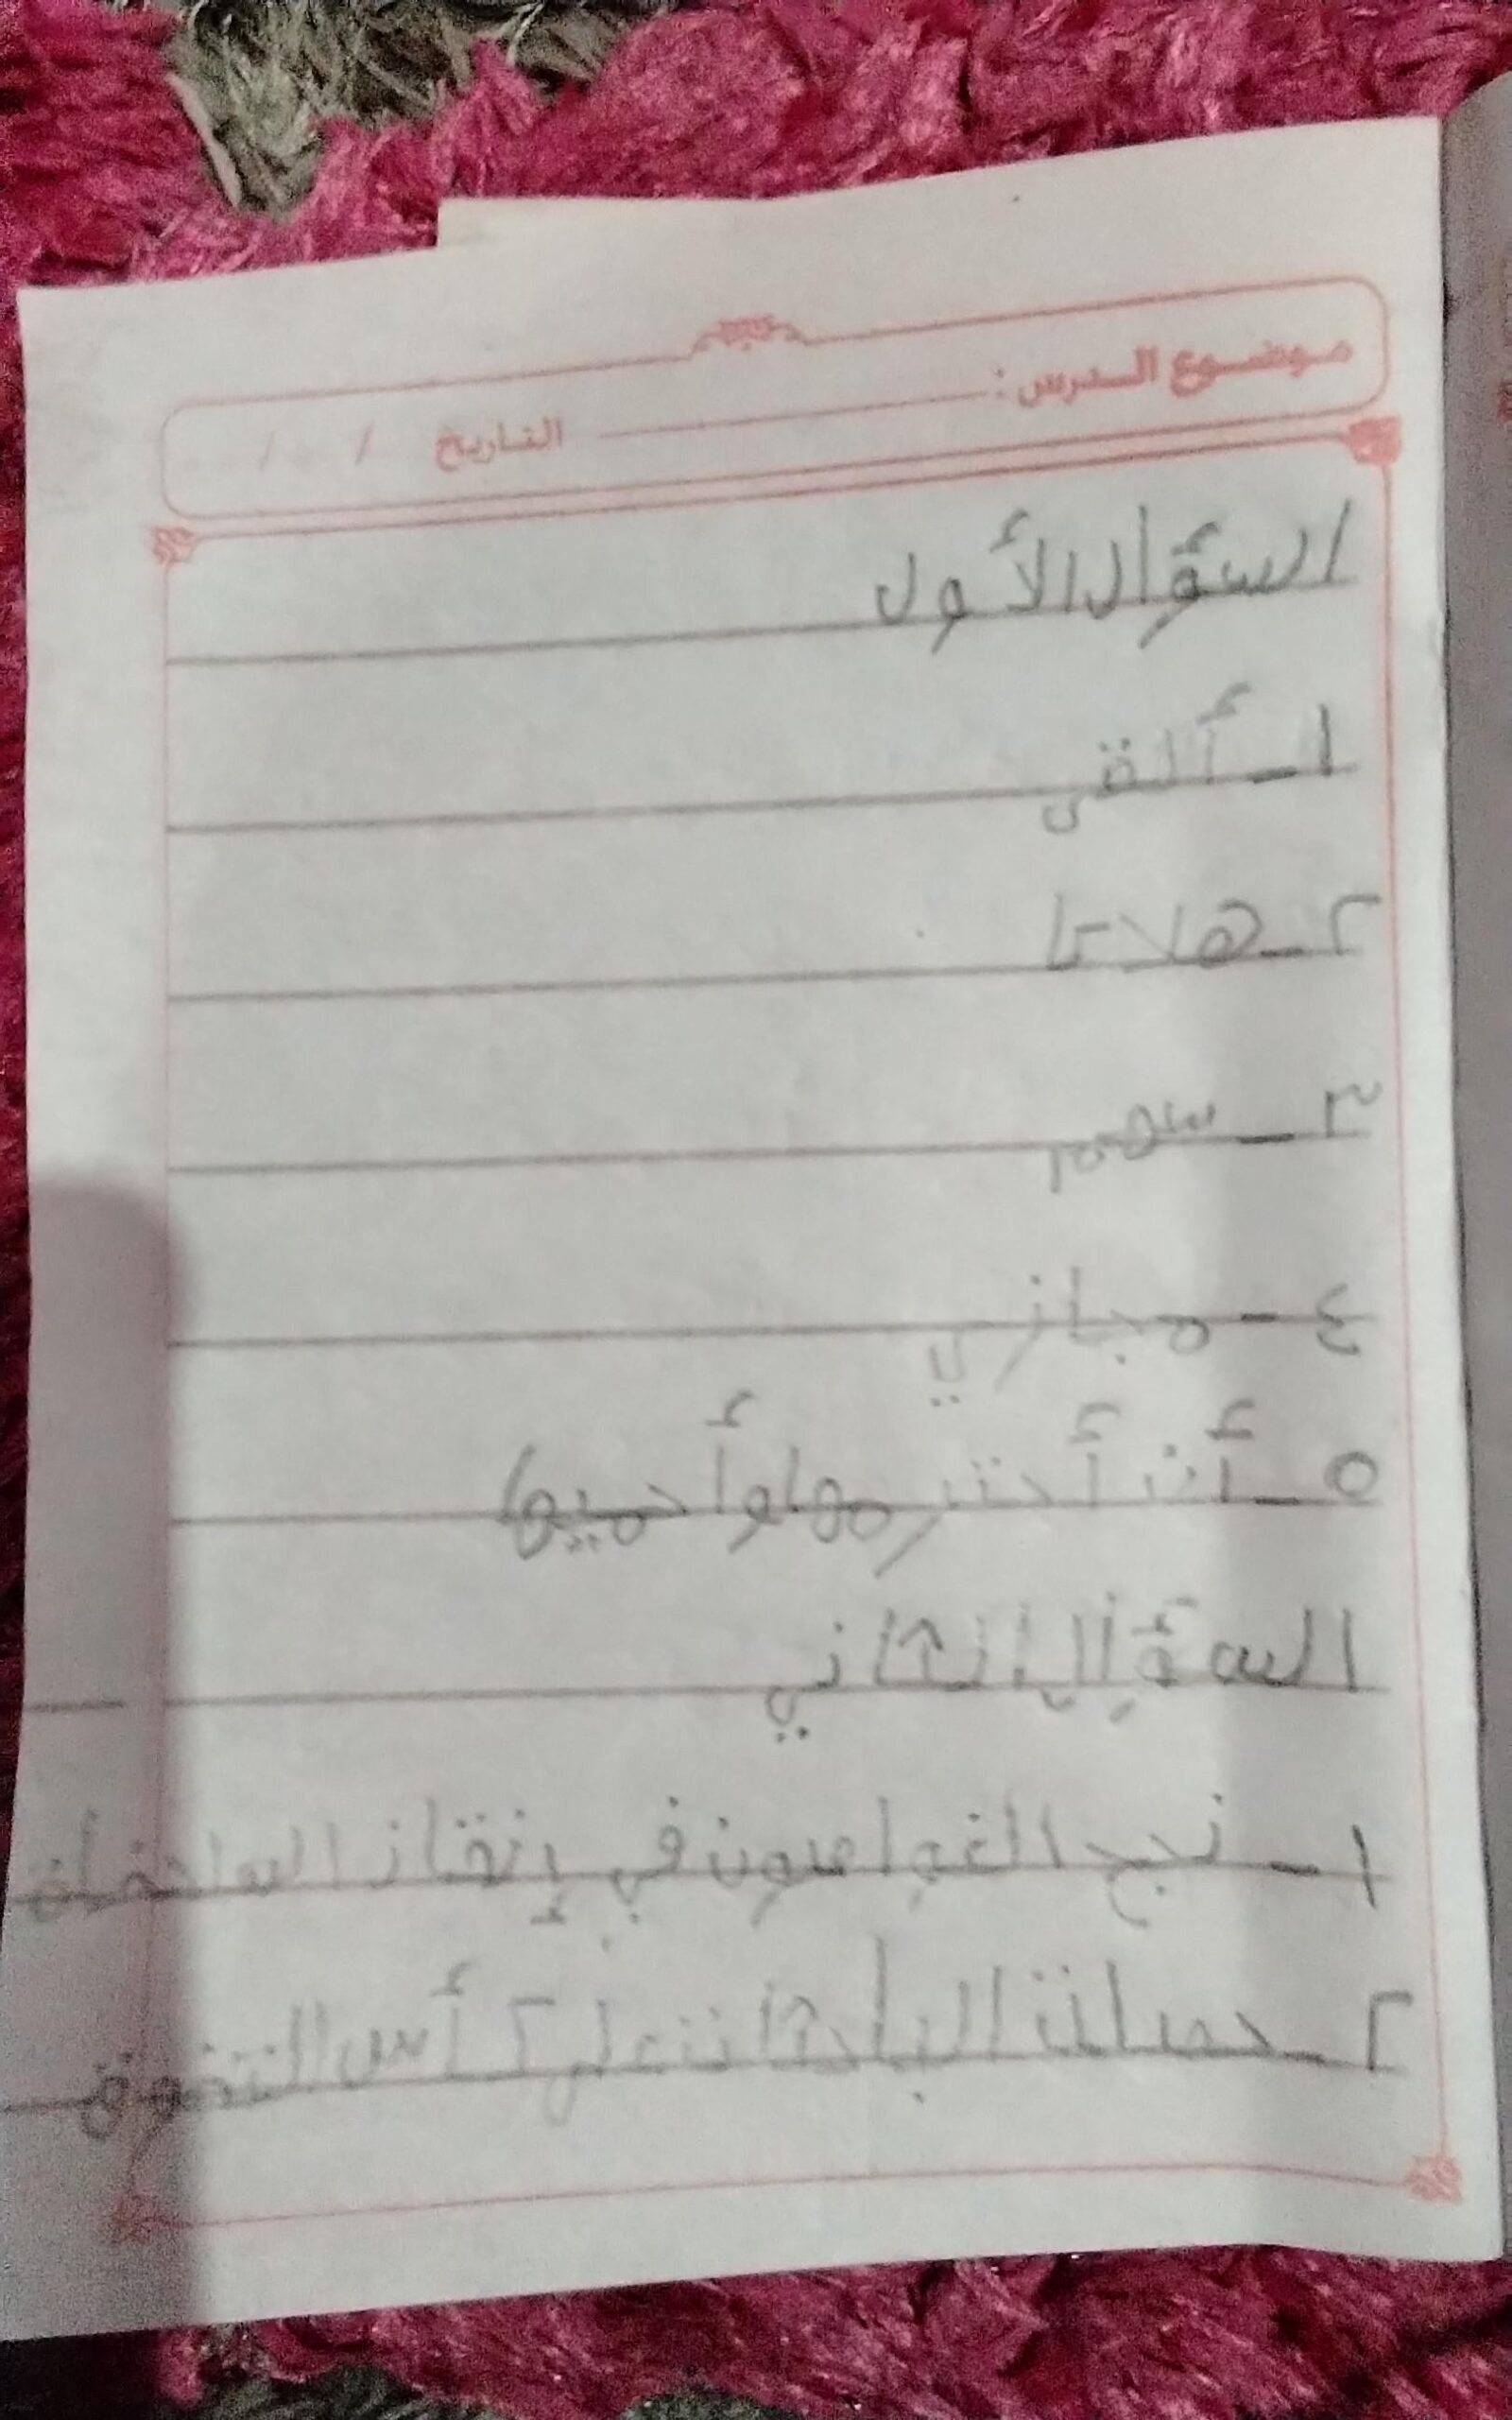 موضوع الدرس : التاريخ / /
السؤال الأول
١ـ ألقى
٢ـ هلا تا
٣ـ سهم
٤ـ مجازي
٥ـ أن أحترمها وأحميها
السؤال الثاني
١ـ نجح الغواصون في إنقاذ السلحفاة
٢ـ حصلت الباحثات على ٢ أس التفوق